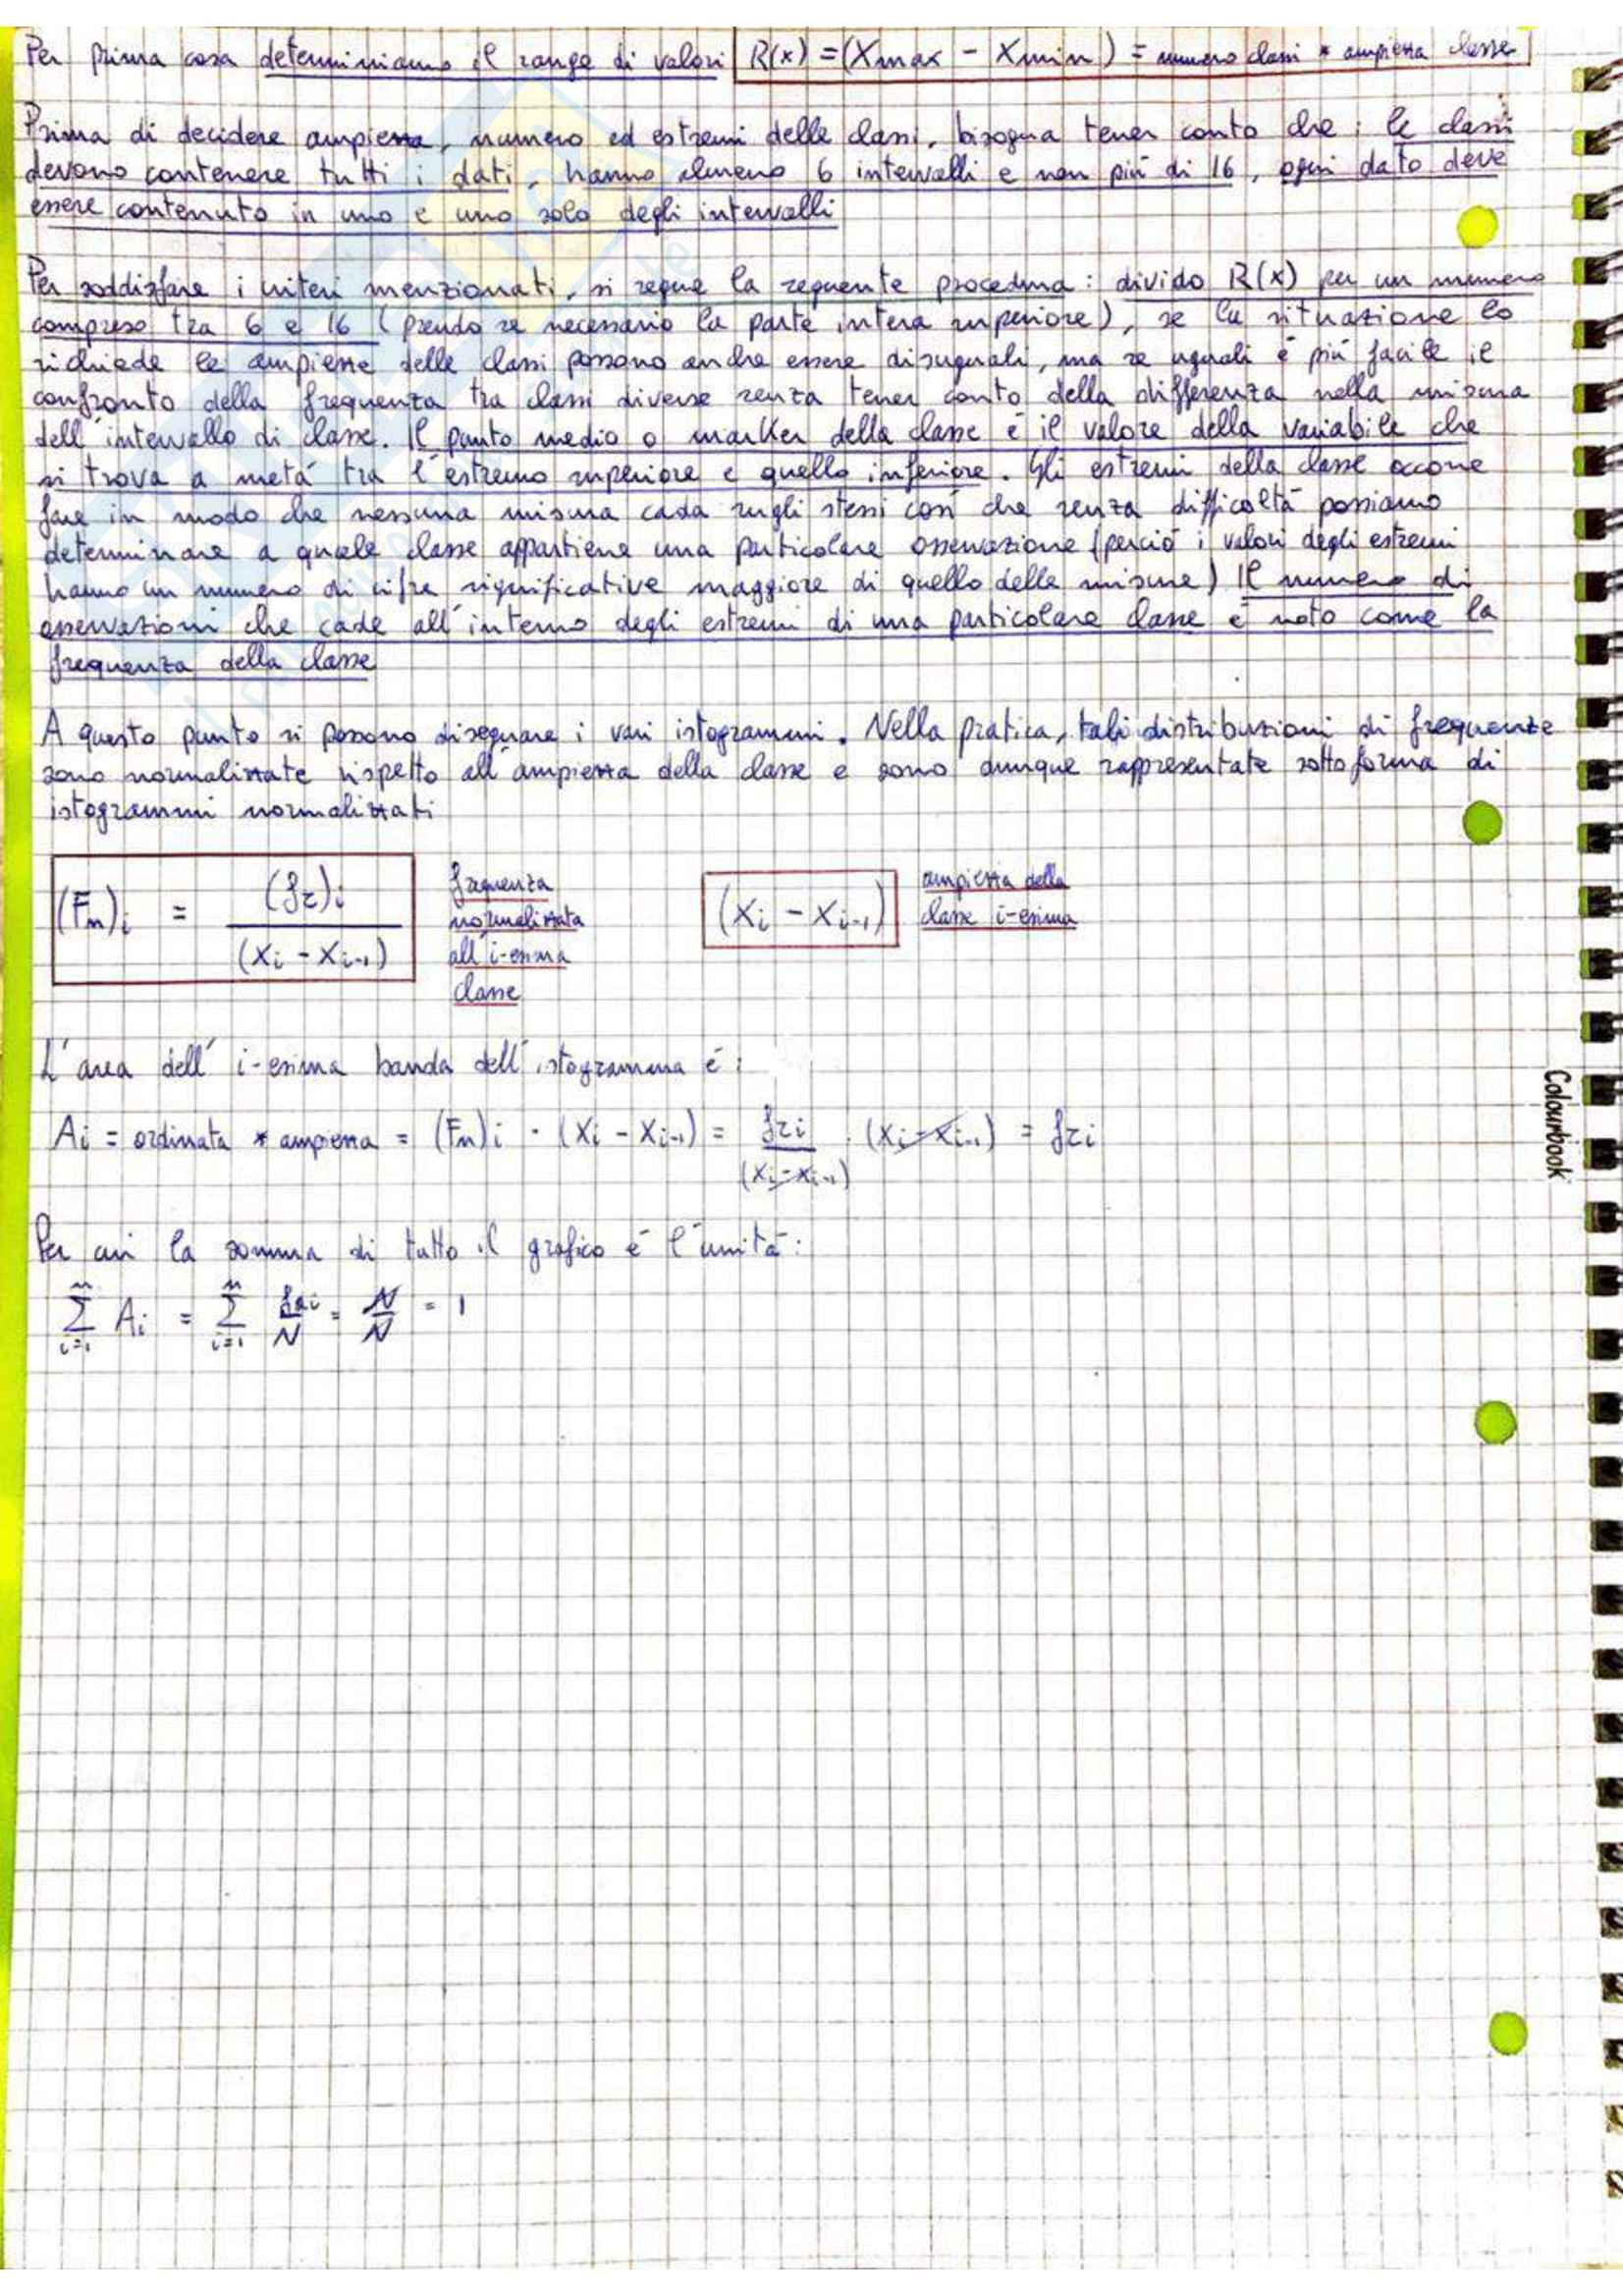 Per prima cosa determiniamo il range di valori R(x) = (Xmax - Xmin) = numero classi * ampiezza classe
Prima di decidere ampiezza, numero ed estremi delle classi, bisogna tener conto che: le classi
devono contenere tutti i dati, hanno almeno 6 intervalli e non più di 16, ogni dato deve
essere contenuto in uno e uno solo degli intervalli
Per soddisfare i criteri menzionati, si segue la seguente procedura: divido R(x) per un numero
compreso tra 6 e 16 (prendo se necessario la parte intera superiore), se la situazione lo
richiede le ampiezze delle classi possono anche essere disuguali, ma se uguali è più facile il
confronto della frequenza tra classi diverse senza tener conto della differenza nella misura
dell'intervallo di classe. Il punto medio o marker della classe è il valore della variabile che
si trova a metà tra l'estremo superiore e quello inferiore. Gli estremi della classe occorre
fare in modo che nessuna misura cada sugli stessi così che senza difficoltà possiamo
determinare a quale classe appartiene una particolare osservazione (perciò i valori degli estremi
hanno un numero di cifre significative maggiore di quello delle misure) Il numero di
osservazioni che cade all'interno degli estremi di una particolare classe è noto come la
frequenza della classe
A questo punto si possono disegnare i vari istogrammi. Nella pratica, tali distribuzioni di frequenze
sono normalizzate rispetto all'ampiezza della classe e sono dunque rappresentate sotto forma di
istogrammi normalizzati
(Fn)i = (fz)i / (Xi - Xi-1)
frequenza
normalizzata
all'i-esima
classe
(Xi - Xi-1)
ampiezza della
classe i-esima
L'area dell'i-esima banda dell'istogramma è:
Ai = ordinata * ampiezza = (Fn)i · (Xi - Xi-1) = fzi / (Xi - Xi-1) · (Xi - Xi-1) = fzi
Per cui la somma di tutto il grafico è l'unità:
∑ i=1 n Ai = ∑ i=1 n fai / N = N / N = 1
Colourbook